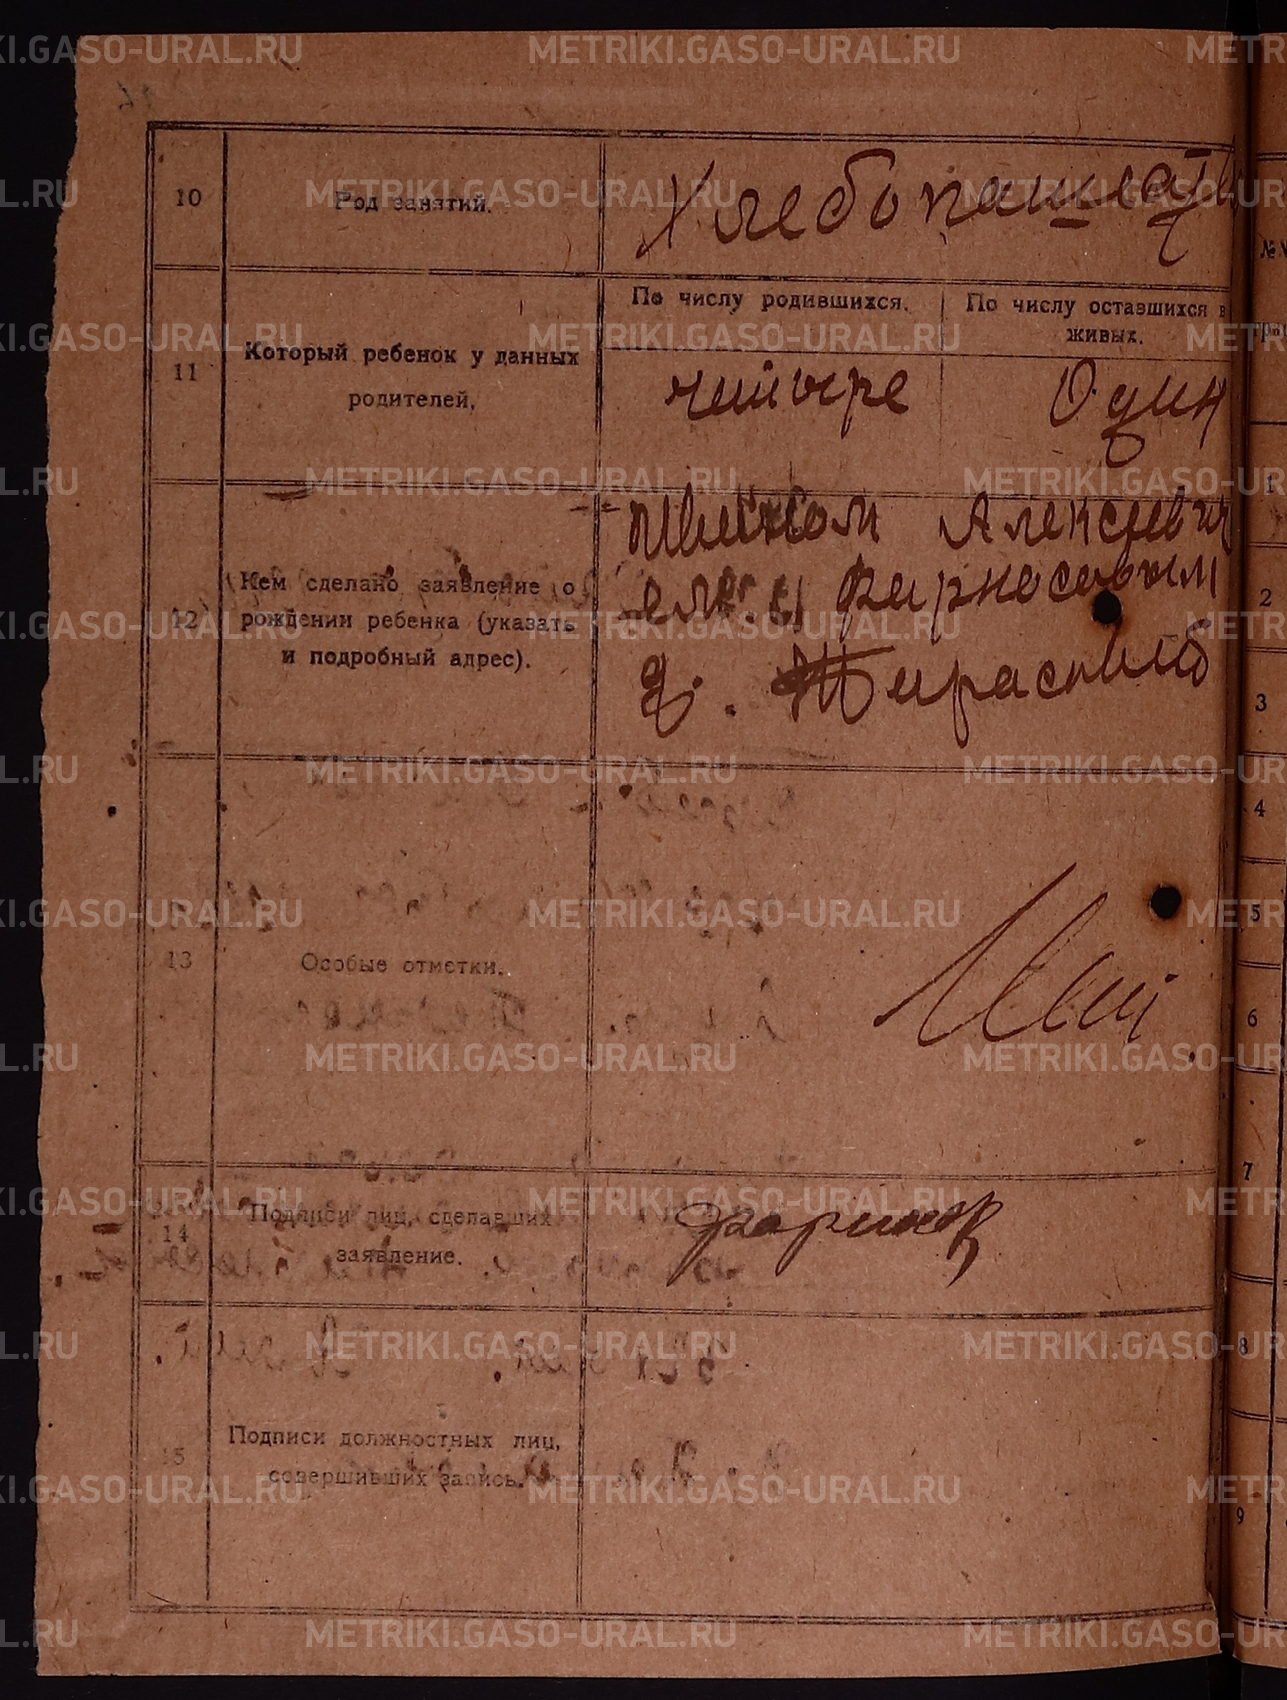 METRIKI.GASO-URAL.RU
10
Род занятий.
Хлебопашеств
11
Который ребенок у данных
родителей.
По числу родившихся.
По числу оставшихся в
живых.
читыре
Один
12
Кем сделано заявление о
рождении ребенка (указать
и подробный адрес).
Алексеевич
Фарносовым
д.
13
Особые отметки.
14
Подписи лиц, сделавших
заявление.
15
Подписи должностных лиц,
совершивших запись.
№
1
2
3
4
5
6
7
8
9